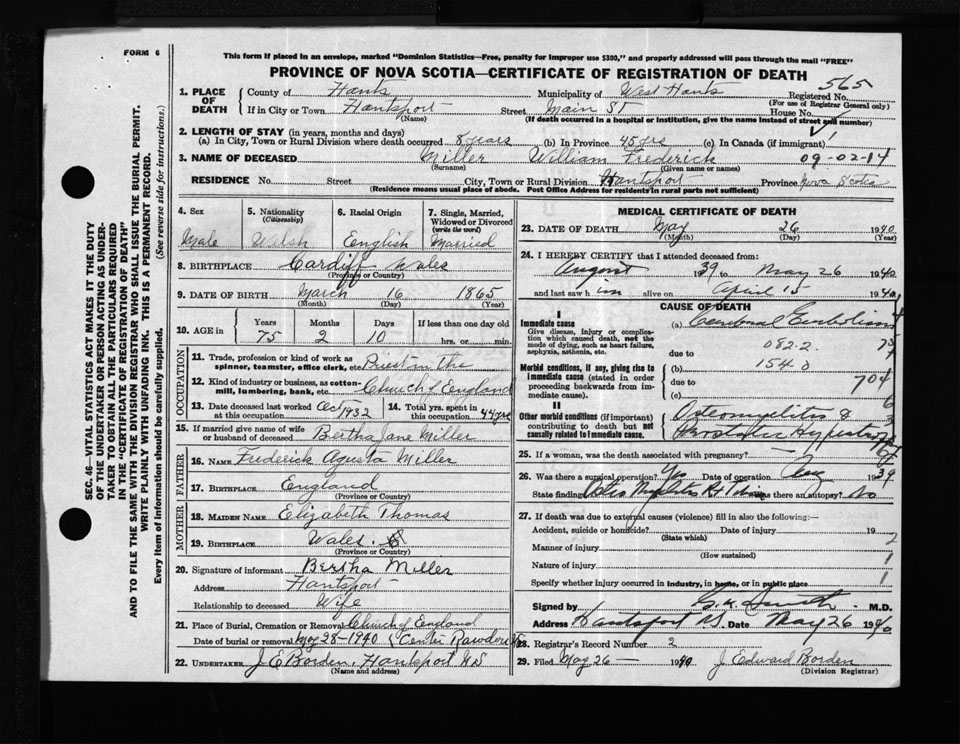 FORM 6
This form if placed in an envelope, marked "Dominion Statistics—Free, penalty for improper use $300," and properly addressed will pass through the mail "FREE"
PROVINCE OF NOVA SCOTIA—CERTIFICATE OF REGISTRATION OF DEATH
SEC. 46—VITAL STATISTICS ACT MAKES IT THE DUTY
OF THE UNDERTAKER OR PERSON ACTING AS UNDER-
TAKER TO OBTAIN ALL THE PARTICULARS REQUIRED
IN THE "CERTIFICATE OF REGISTRATION OF DEATH"
AND TO FILE THE SAME WITH THE DIVISION REGISTRAR WHO SHALL ISSUE THE BURIAL PERMIT.
WRITE PLAINLY WITH UNFADING INK. THIS IS A PERMANENT RECORD.
Every item of information should be carefully supplied. (See reverse side for instructions.)
1. PLACE OF DEATH County of Hants Municipality of West Hants Registered No. 565
(For use of Registrar General only)
If in City or Town Hantsport Street Main St House No.
(Name) (If death occurred in a hospital or institution, give the name instead of street and number)
2. LENGTH OF STAY (in years, months and days)
(a) In City, Town or Rural Division where death occurred 8 years (b) In Province 45 yrs (c) In Canada (if immigrant)
3. NAME OF DECEASED Miller William Frederick 09-02-14
(Surname) (Given name or names)
RESIDENCE No. Street City, Town or Rural Division Hantsport Province Nova Scotia
(Residence means usual place of abode. Post Office Address for residents in rural parts not sufficient)
4. Sex 5. Nationality (Citizenship) 6. Racial Origin 7. Single, Married, Widowed or Divorced (write the word)
Male Walsh English Married
8. BIRTHPLACE Cardiff Wales
(Province or Country)
9. DATE OF BIRTH March 16 1865
(Month) (Day) (Year)
10. AGE in Years Months Days If less than one day old
75 2 10 hrs. or min.
OCCUPATION
11. Trade, profession or kind of work as spinner, teamster, office clerk, etc. Priest in the
12. Kind of industry or business, as cotton-mill, lumbering, bank, etc. Church of England
13. Date deceased last worked at this occupation Oct 1932 14. Total yrs. spent in this occupation 44 yrs
15. If married give name of wife or husband of deceased Bertha Jane Miller
FATHER
16. NAME Frederick Agusta Miller
17. BIRTHPLACE England
(Province or Country)
MOTHER
18. MAIDEN NAME Elizabeth Thomas
19. BIRTHPLACE Wales.
(Province or Country)
20. Signature of informant Bertha Miller
Address Hantsport
Relationship to deceased Wife
21. Place of Burial, Cremation or Removal Church of England
Date of burial or removal May 28-1940 (Centre Rawdon
22. UNDERTAKER J E Borden, Hantsport NS
(Name and address)
MEDICAL CERTIFICATE OF DEATH
23. DATE OF DEATH May 26 1940
(Month) (Day) (Year)
24. I HEREBY CERTIFY that I attended deceased from:
August 1939 to May 26 1940
and last saw him alive on April 15 1940
CAUSE OF DEATH
I
Immediate cause (a) Cerebral Embolism
Give disease, injury or complication which caused death, not the mode of dying, such as heart failure, asphyxia, asthenia, etc.
due to 082.2
Morbid conditions, if any, giving rise to immediate cause (stated in order proceeding backwards from immediate cause). (b) 154.0
due to 704
(c)
II
Other morbid conditions (if important) contributing to death but not causally related to immediate cause. Osteomyelitis &
25. If a woman, was the death associated with pregnancy?
26. Was there a surgical operation? Yes Date of operation Aug 1939
State findings was there an autopsy? No
27. If death was due to external causes (violence) fill in also the following:—
Accident, suicide or homicide? Date of injury 19
(State which)
Manner of injury
(How sustained)
Nature of injury
Specify whether injury occurred in industry, in home, or in public place
Signed by M.D.
Address Hantsport NS. Date May 26 1940
28. Registrar's Record Number 2
29. Filed May 26— 1940 J. Edward Borden
(Division Registrar)